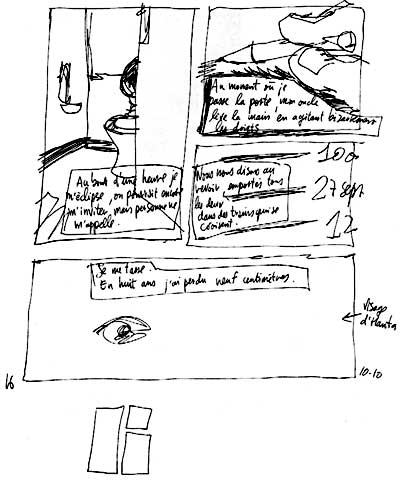 Au bout d'une heure je
m'éclipse, on pourrait encore
m'inviter, mais personne ne
m'appelle.
Au moment où je
passe la porte, mon oncle
lève la main en agitant bizarrement
les doigts.
Nous nous disons au
revoir, emportés tous
les deux
dans des trains qui se
croisent.
100
27 sept
12
Je me tasse.
En huit ans j'ai perdu neuf centimètres.
visage
16
10-10